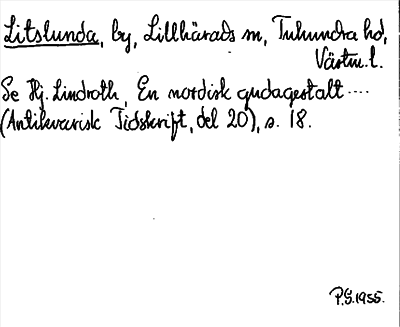 Litslunda, by, Lillhärads sn, Tuhundra hd,
Västm.l.
Se Hj. Lindroth, En nordisk gudagestalt ....
(Antikvarisk Tidskrift, del 20), s. 18.
P.G. 1955.